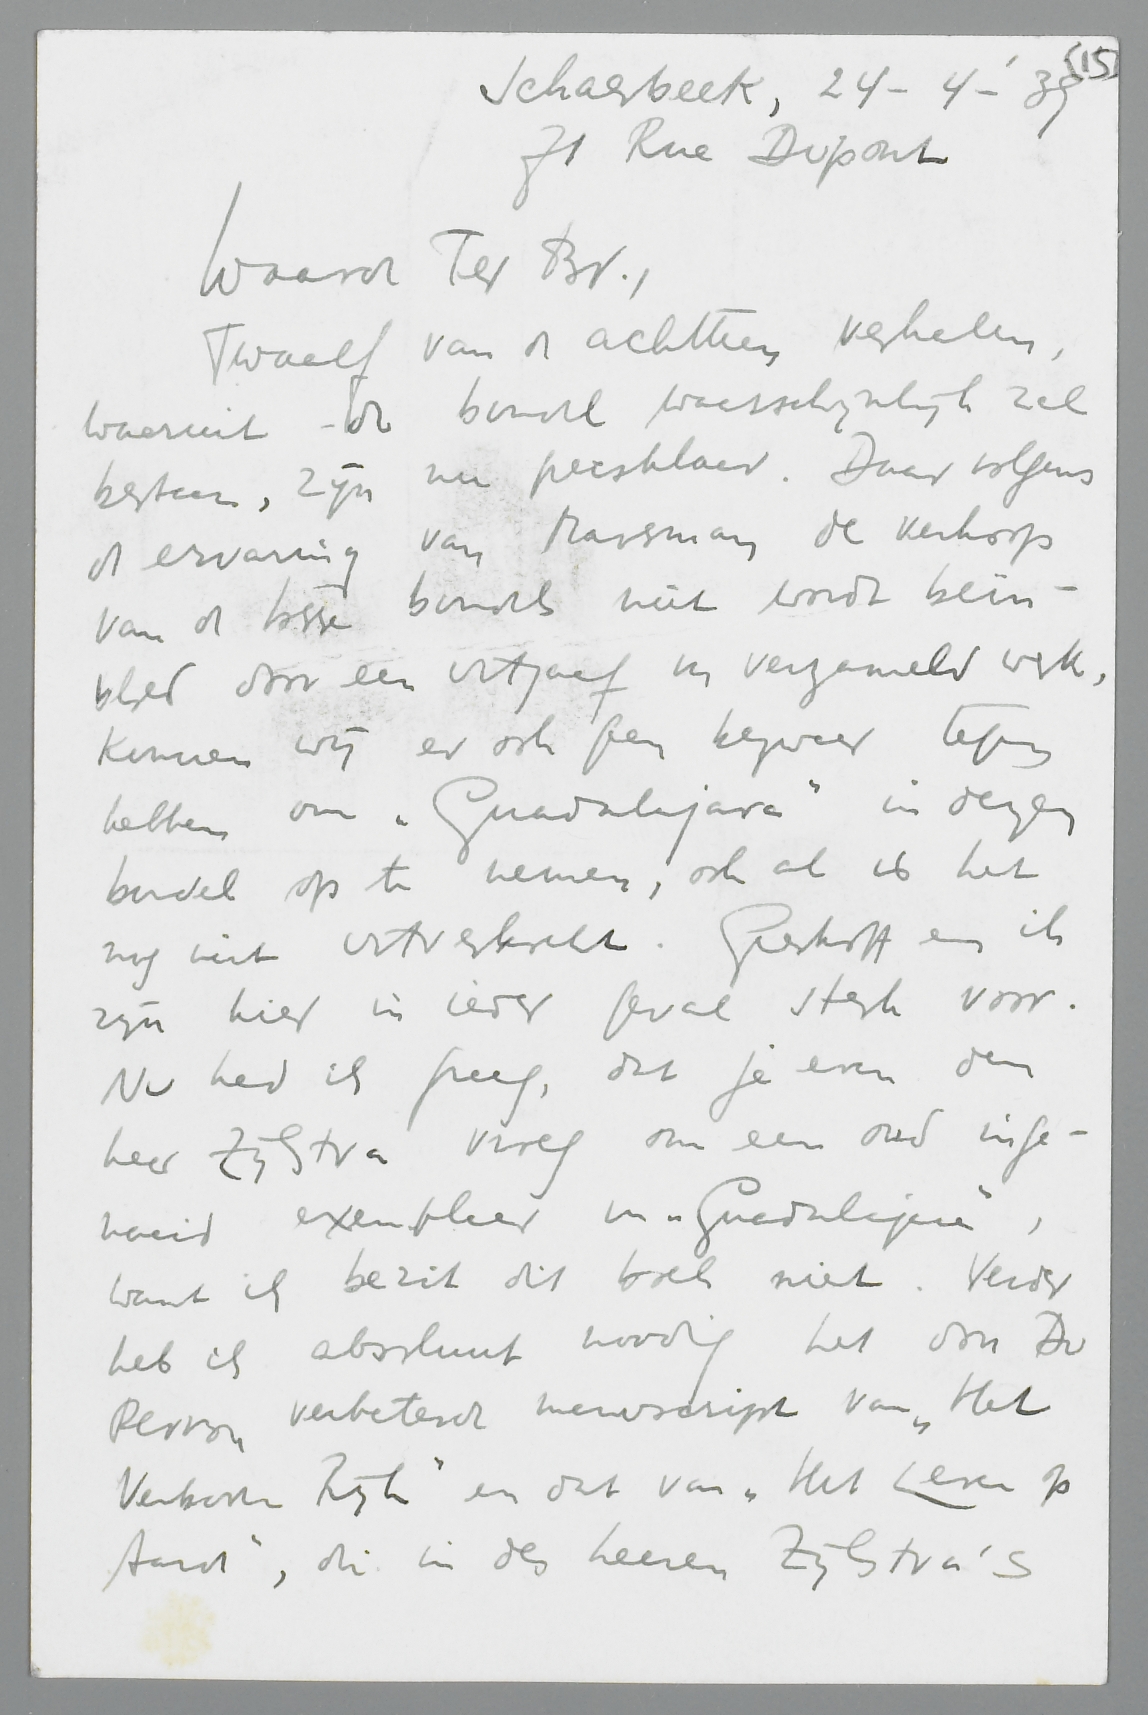 (15)
Schaerbeek, 24-4-'39
71 Rue Dupont
Waarde Ter Br.,
Twaalf van de achttien verhalen,
waaruit de bundel waarschijnlijk zal
bestaan, zijn nu persklaar. Daar volgens
de ervaring van Marsman de verkoop
van de losse bundels niet wordt beïn-
vloed door een uitgaaf in verzameld werk,
kunnen wij er ook geen bezwaar tegen
hebben om „Guadalajara" in dezen
bundel op te nemen, ook al is het
nog niet uitverkocht. Greshoff en ik
zijn hier in ieder geval sterk voor.
Nu had ik graag, dat je even den
heer Zijlstra vroeg om een oud inge-
naaid exemplaar v. „Guadalajara",
want ik bezit dit boek niet. Verder
heb ik absoluut noodig het door Du
Perron verbeterde manuscript van „Het
Verboden Rijk" en dat van „Het Leven op
Aarde", die in des heeren Zijlstra's